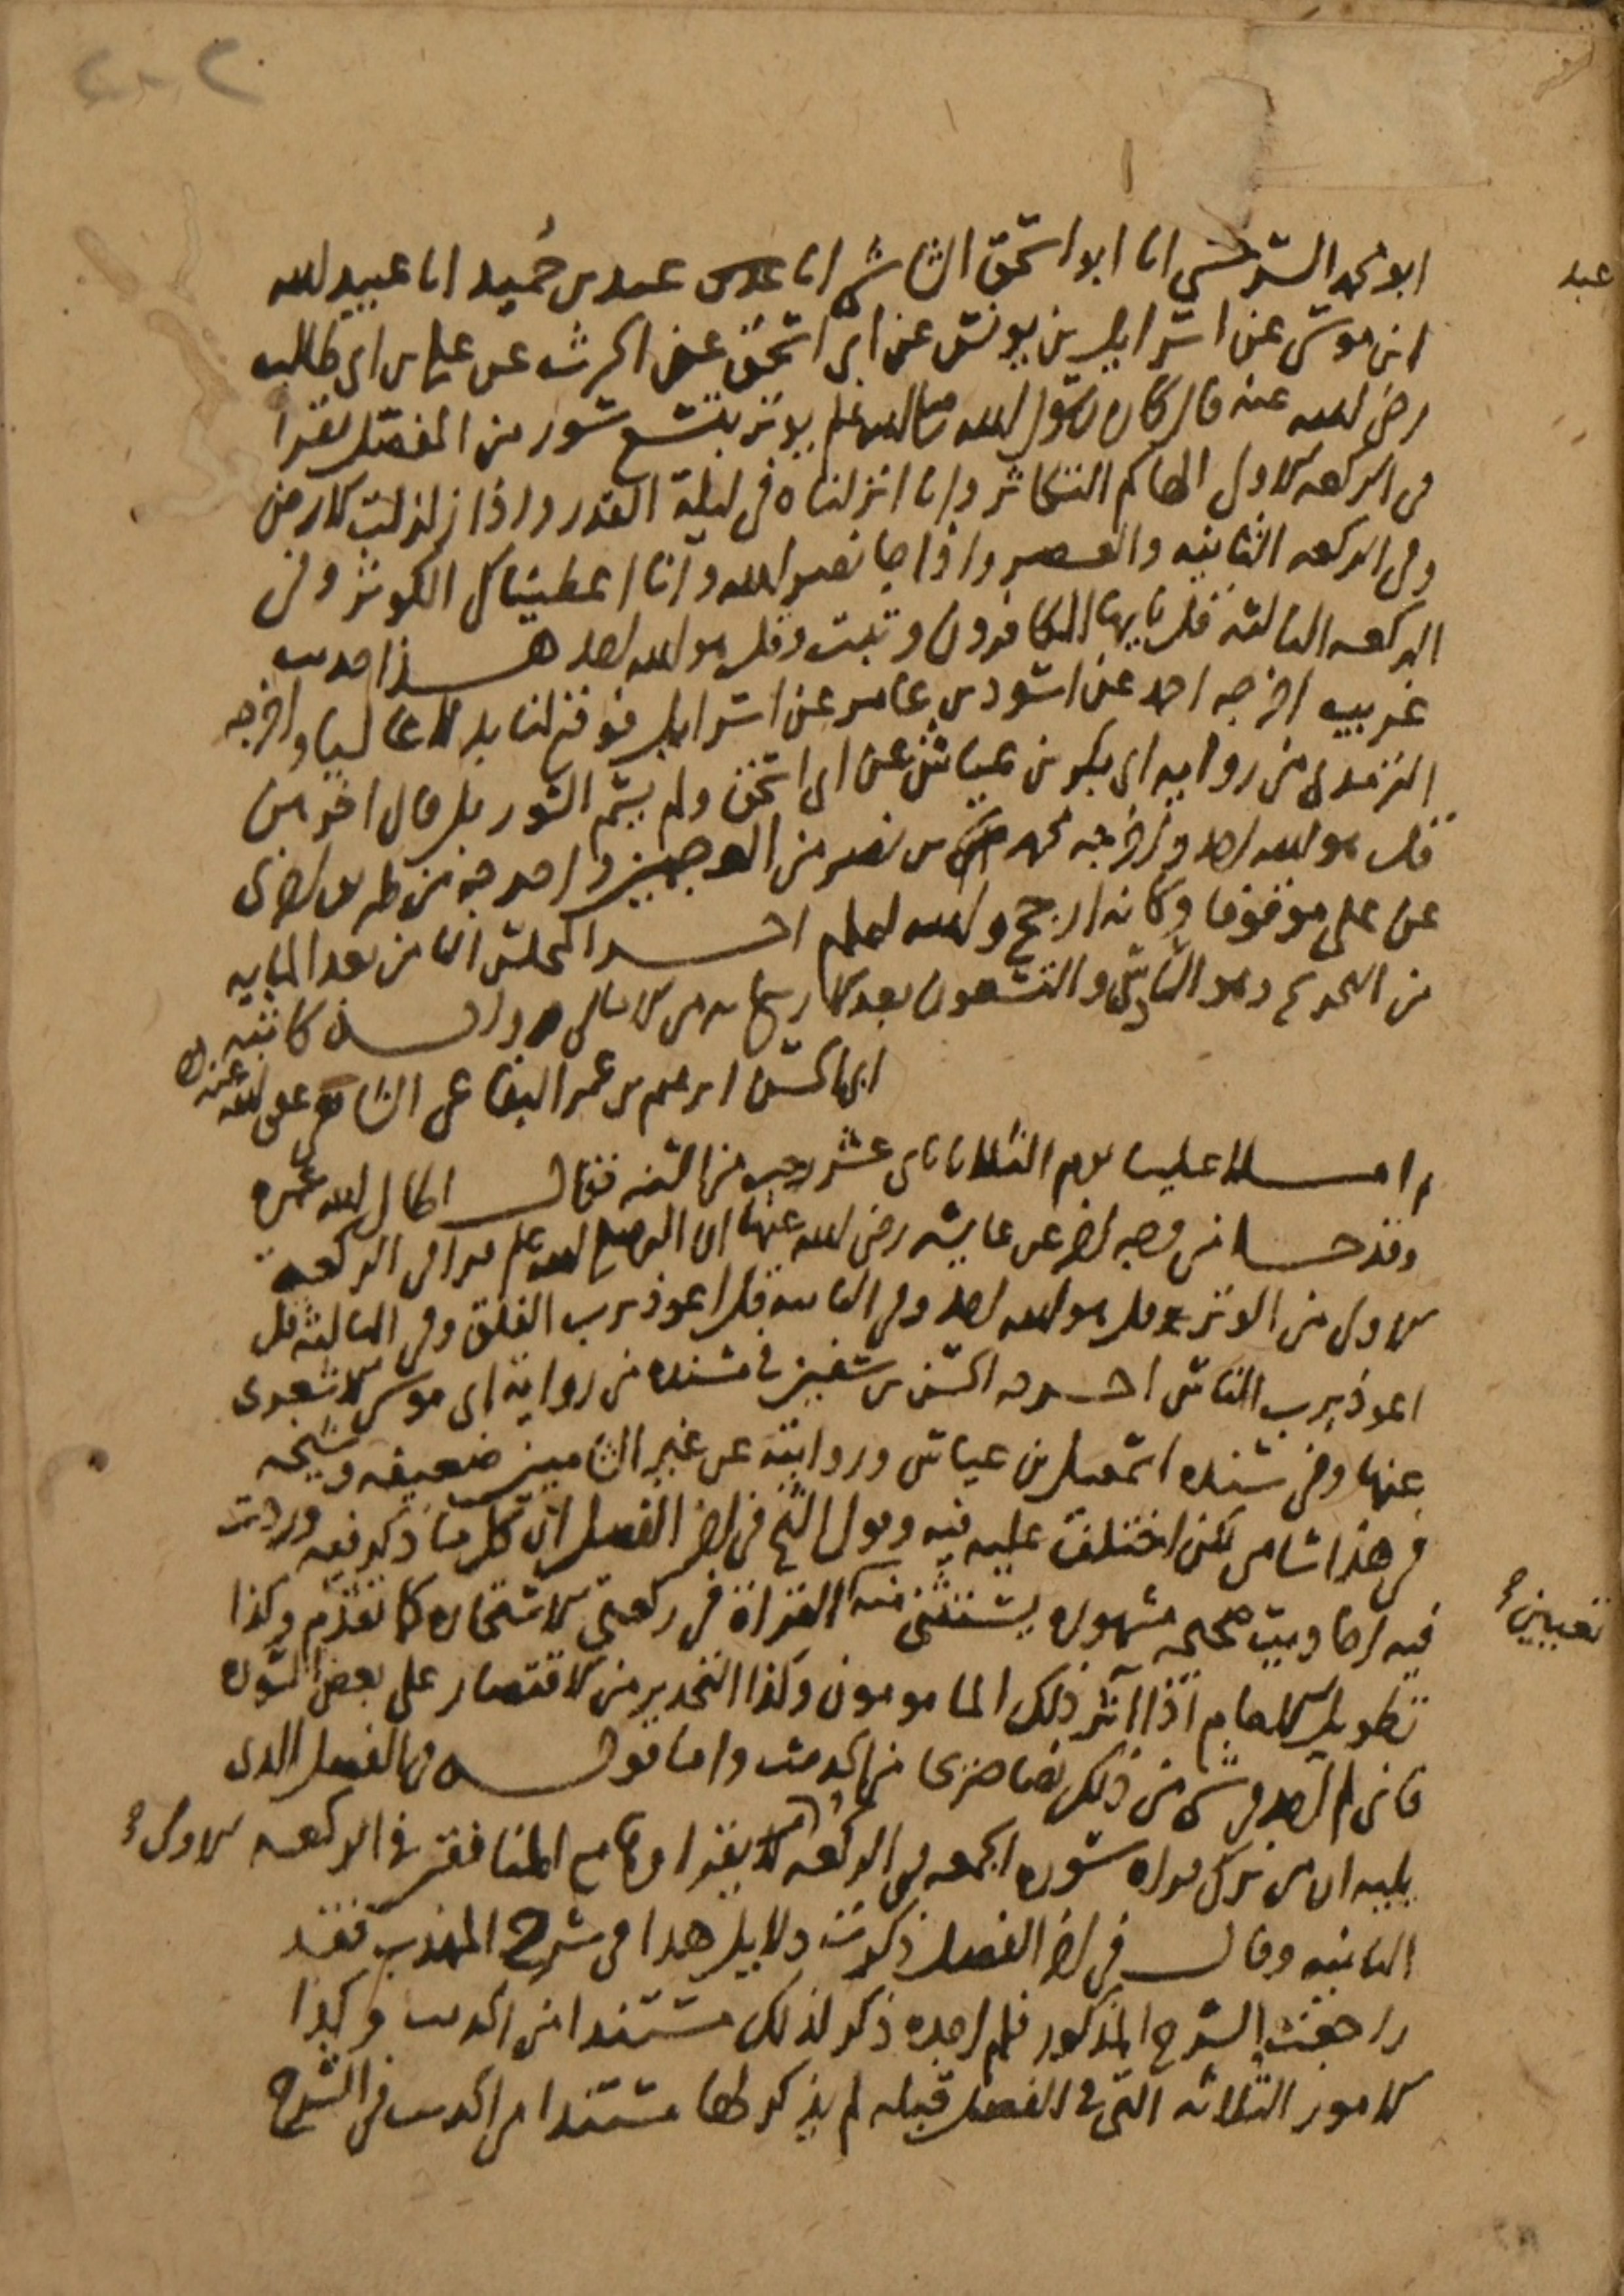 ٢٠٢
ابو محمد السرخسي انا ابو اسحق الشاشي انا عبد بن حميد انا عبيد الله
عبد
ابن موسى عن اسرايل بن يونس عن ابي اسحق عن الحرث عن علي بن ابي طالب
رضي الله عنه قال كان رسول الله صلى الله عليه وسلم يوتر بتسع سور من المفصل يقرا
في الركعه الاولى الهاكم التكاثر وانا انزلناه في ليلة القدر واذا زلزلت الارض
وفي الركعه الثانيه والعصر واذا جا نصر الله وانا اعطيناك الكوثر وفي
الركعه الثالثه قل يايها الكافرون وتبت وقل هو الله احد هذا حديث
غريب اخرجه احمد عن اسود بن عامر عن اسرايل فوقع لنا بدلا عاليا واخرجه
الترمذي من رواية ابي بكر بن عياش عن ابي اسحق ولم يسم السور بل قال اخرهن
قل هو الله احد واخرجه محمد بن نصر من الوجهين واخرجه من طريق اخرى
عن علي موقوفا وكانه ارجح والله اعلم اخر المجلس الثامن بعد المايه
من التخريج وهو السادس والتسعون بعد الاربعمايه من الامالي رواية كاتبه
ابي الحسن ابرهيم بن عمر البقاعي الشافعي عفى الله عنه
ثم املا علينا يوم الثلاثا ثاني عشر رجب من السنه فقال اطال الله عمره
وقد جا من وجه اخر عن عايشه رضي الله عنها ان النبي صلى الله عليه وسلم قرا في الركعة
الاولى من الوتر قل هو الله احد وفي الثانيه قل اعوذ برب الفلق وفي الثالثه قل
اعوذ برب الناس اخرجه الحسن بن سفين في مسنده من رواية ابي موسى الاشعري
عنها وفي سنده اسمعيل بن عياش وروايته عن غير الشاميين ضعيفه وشيخه
في هذا شامي لكن اختلف عليه فيه وقول الشيخ في اخر الفصل ان كل ما ذكر فيه وردت
فيه احاديث صحيحه مشهوره يستثنى منه القراة في ركعتي الاستخاره كما تقدم وكذا
تعيين
تطويل الامام اذا اثر ذلك المامومون وكذا التحذير من الاقتصار على بعض السوره
فاني لم اجد في شي من ذلك نصا صريحا من الحديث واما قوله في الفصل الذي
يليه ان من ترك قراه سوره الجمعه في الركعه الاولى يقراها مع المنافقين في الركعه
الثانيه وقال في اخر الفصل ذكرت دلايل هذا في شرح المهذب فقد
راجعت الشرح المذكور فلم اجده ذكر لذلك مستندا من الحديث وكذا
الامور الثلاثه التي في الفصل قبله لم يذكر لها مستندا من الحديث في الشرح